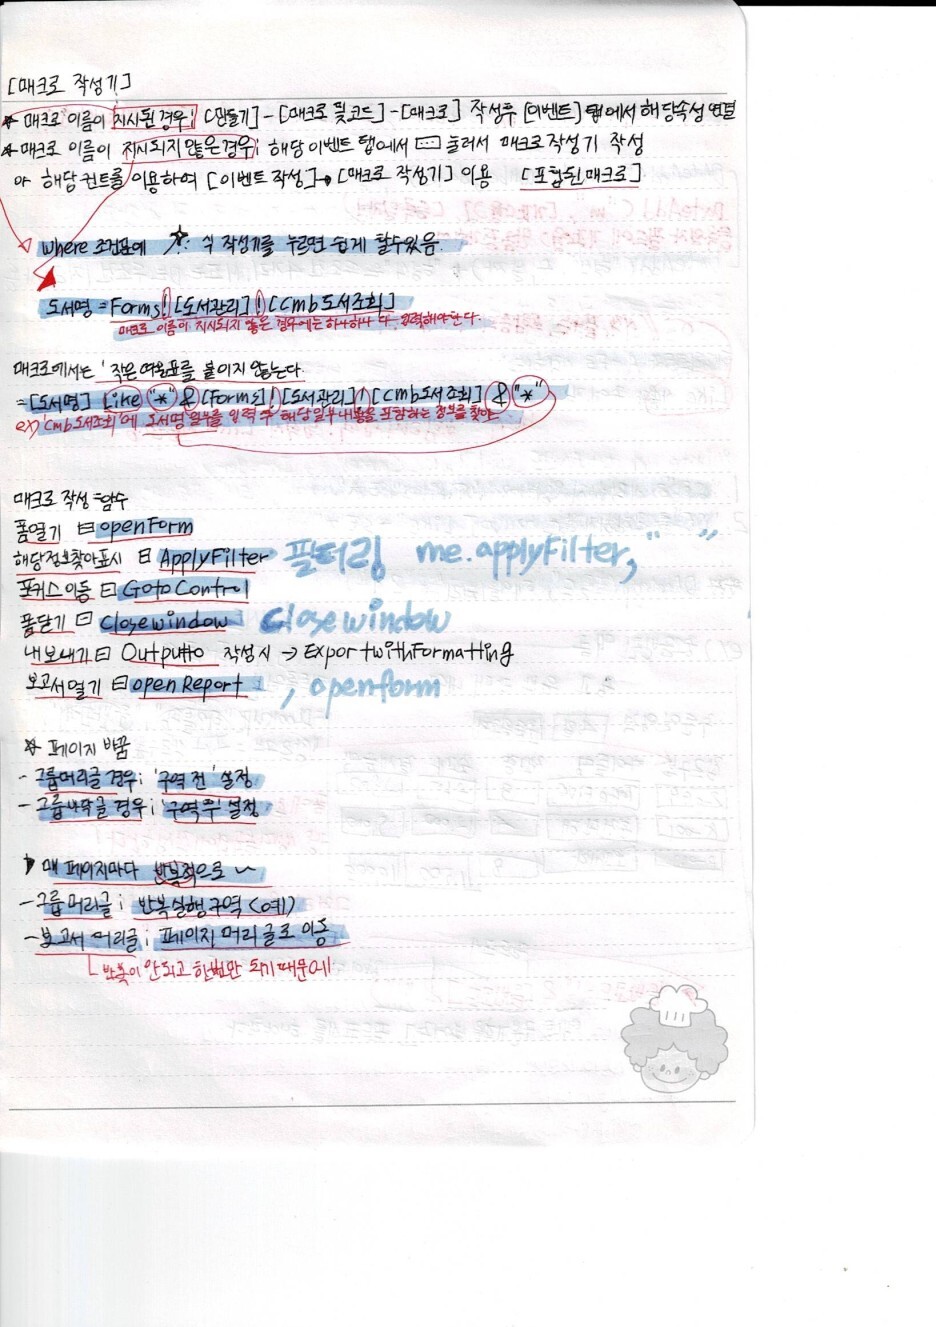 [매크로 작성기]
* 매크로 이름이 지시된 경우; [만들기]-[매크로 및 코드]-[매크로] 작성후 [이벤트] 탭에서 해당속성 연결
* 매크로 이름이 지시되지 않은 경우; 해당 이벤트 탭에서 […] 눌러서 매크로 작성기 작성
해당 컨트롤 이용하여 [이벤트 작성]→[매크로 작성기] 이용 [포함된 매크로]
where 조건표에 식 작성기를 누르면 쉽게 할수있음.
도서명 = Forms![도서관리]![cmb도서조회]
매크로 이름이 지시되지 않은 경우에는 하나하나 다 입력해야한다.
매크로에서는 ' 작은 여옴표를 붙이지 않는다.
=[도서명] Like "*" & [Forms]![도서관리]![cmb도서조회] & "*"
ex) 'cmb도서조회'에 도서명 일부를 입력 후 해당일부내용을 포함하는 정보를 찾아
매크로 작성 함수
폼열기 = openForm
해당정보찾아표시 = ApplyFilter 필터링 me.applyFilter, " "
포커스이동 = GotoControl
폼닫기 = closewindow closewindow
내보내기 = Outputto 작성시 → ExportwithFormatting
보고서열기 = openReport , openform
* 페이지 바꿈
- 그룹머리글 경우; '구역 전' 설정
- 그룹바닥글 경우; '구역 후' 설정
매 페이지마다 반복적으로 ~
- 그룹 머리글; 반복실행구역 (예)
- 보고서 머리글; 페이지 머리글로 이동
반복이 안되고 한번만 되기 때문에